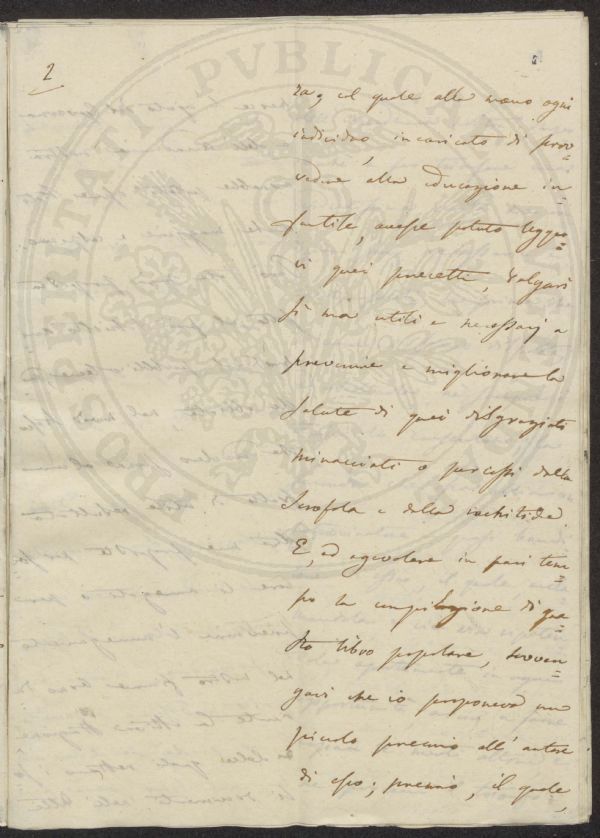 2
za, col quale alla mano ogni
individuo, incaricato di prov=
vedere alla educazione in=
fantile, avesse potuto legger=
vi quei precetti, volgari
sì ma utili e necessarj a
prevenire e migliorare la
salute di quei disgraziati
minacciati o percossi dalla
Scrofola e dalla rachitide.
E, ad agevolare in pari tem=
po la compilazione di que=
sto libro popolare, sovven=
gavi che io proponeva un
piccolo premio all' autore
di esso; premio, il quale,
PROSPERITATI PVBLICAE AVGENDAE